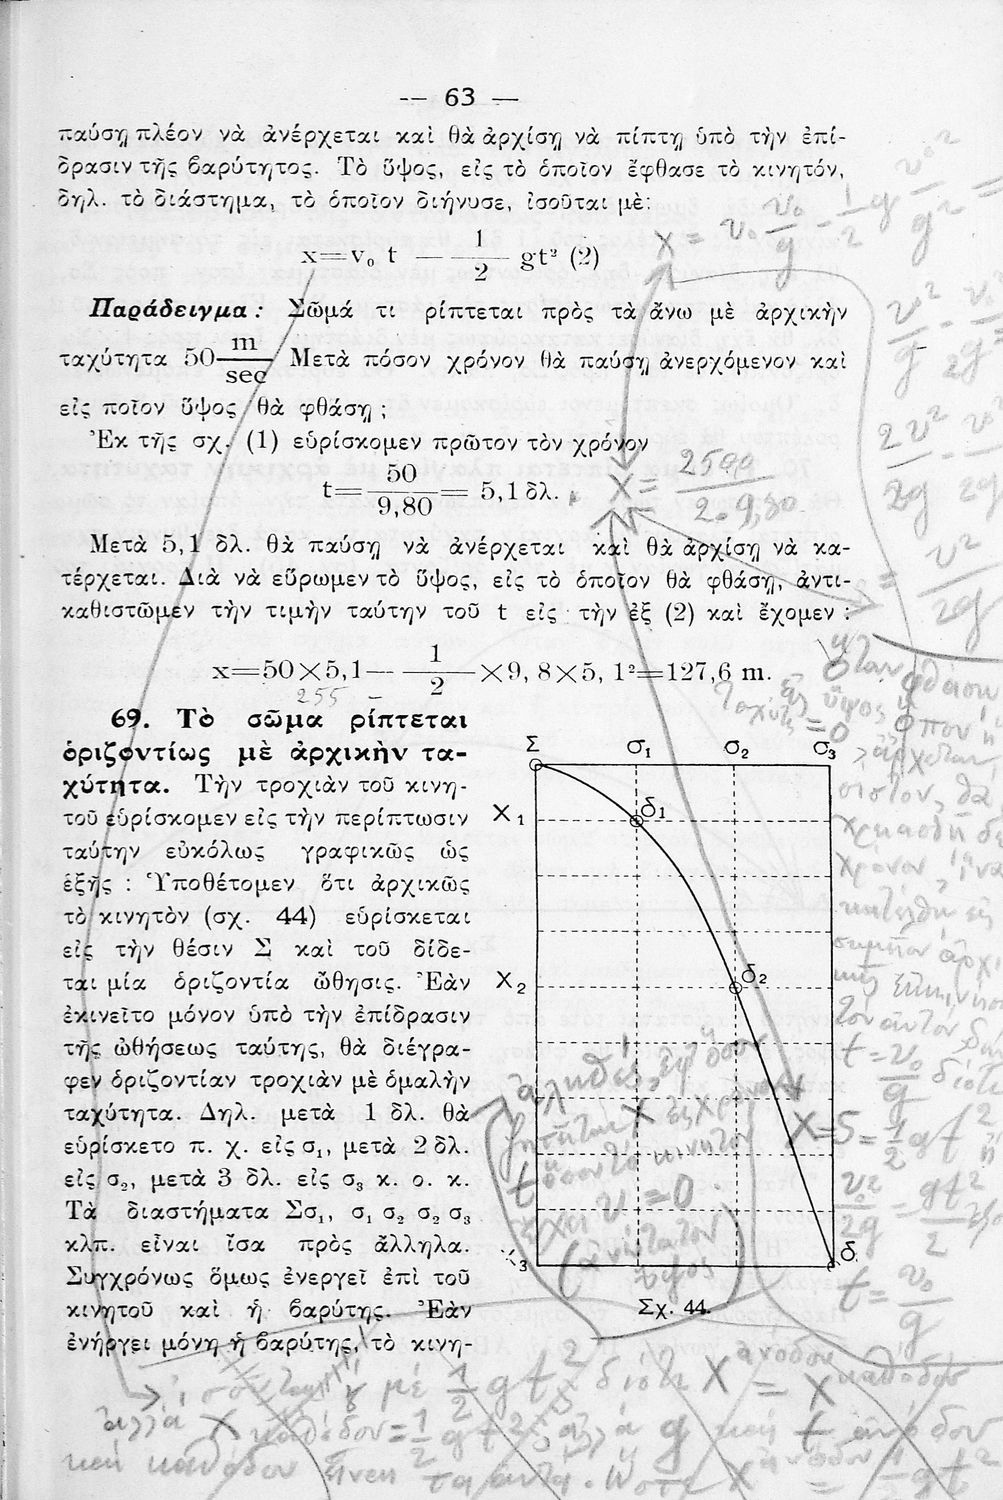 — 63 —
παύσῃ πλέον νὰ ἀνέρχεται καὶ θὰ ἀρχίσῃ νὰ πίπτῃ ὑπὸ τὴν ἐπί-
δρασιν τῆς βαρύτητος. Τὸ ὕψος, εἰς τὸ ὁποῖον ἔφθασε τὸ κινητόν,
δηλ. τὸ διάστημα, τὸ ὁποῖον διήνυσε, ἰσοῦται μὲ:
x=v₀ t — 1/2 gt² (2)
Παράδειγμα : Σῶμά τι ρίπτεται πρὸς τὰ ἄνω μὲ ἀρχικὴν
ταχύτητα 50 m/sec Μετὰ πόσον χρόνον θὰ παύσῃ ἀνερχόμενον καὶ
εἰς ποῖον ὕψος θὰ φθάσῃ ;
Ἐκ τῆς σχ. (1) εὑρίσκομεν πρῶτον τὸν χρόνον
t= 50/9,80 = 5,1 δλ.
X = 2500/2.9,80
Μετὰ 5,1 δλ. θὰ παύσῃ νὰ ἀνέρχεται καὶ θὰ ἀρχίσῃ νὰ κα-
τέρχεται. Διὰ νὰ εὕρωμεν τὸ ὕψος, εἰς τὸ ὁποῖον θὰ φθάσῃ, ἀντι-
καθιστῶμεν τὴν τιμὴν ταύτην τοῦ t εἰς τὴν ἐξ (2) καὶ ἔχομεν :
x=50×5,1— 1/2 ×9, 8×5, 1²=127,6 m.
255 –
69. Τὸ σῶμα ρίπτεται
ὁριζοντίως μὲ ἀρχικὴν τα-
χύτητα. Τὴν τροχιὰν τοῦ κινη-
τοῦ εὑρίσκομεν εἰς τὴν περίπτωσιν
ταύτην εὐκόλως γραφικῶς ὡς
ἑξῆς : Ὑποθέτομεν ὅτι ἀρχικῶς
τὸ κινητὸν (σχ. 44) εὑρίσκεται
εἰς τὴν θέσιν Σ καὶ τοῦ δίδε-
ται μία ὁριζοντία ὤθησις. Ἐὰν
ἐκινεῖτο μόνον ὑπὸ τὴν ἐπίδρασιν
τῆς ὠθήσεως ταύτης, θὰ διέγρα-
φεν ὁριζοντίαν τροχιὰν μὲ ὁμαλὴν
ταχύτητα. Δηλ. μετὰ 1 δλ. θὰ
εὑρίσκετο π. χ. εἰς σ₁, μετὰ 2 δλ.
εἰς σ₂, μετὰ 3 δλ. εἰς σ₃ κ. ο. κ.
Τὰ διαστήματα Σσ₁, σ₁ σ₂ σ₂ σ₃
κλπ. εἶναι ἴσα πρὸς ἄλληλα.
Συγχρόνως ὅμως ἐνεργεῖ ἐπὶ τοῦ
κινητοῦ καὶ ἡ βαρύτης. Ἐὰν
ἐνήργει μόνη ἡ βαρύτης, τὸ κινη-
Σ σ₁ σ₂ σ₃
X₁ δ₁
X₂ δ₂
X₃ δ
Σχ. 44.
X = v₀ v₀/g – 1/2 g v₀²/g² =
v²/2g
t = v₀/g διότι
X=S= 1/2 gt²
v₀²/2g = gt²/2
t = v₀/g
v = 0
με 1/2 gt² διότι X ἀνόδου = X καθόδου
ἀλλά X καθόδου = 1/2 gt², ἀλλά g καί t ἀνόδου
καί καθόδου εἶναι τα αὐτά. Ὥστε X ἀνόδου = 1/2 gt²